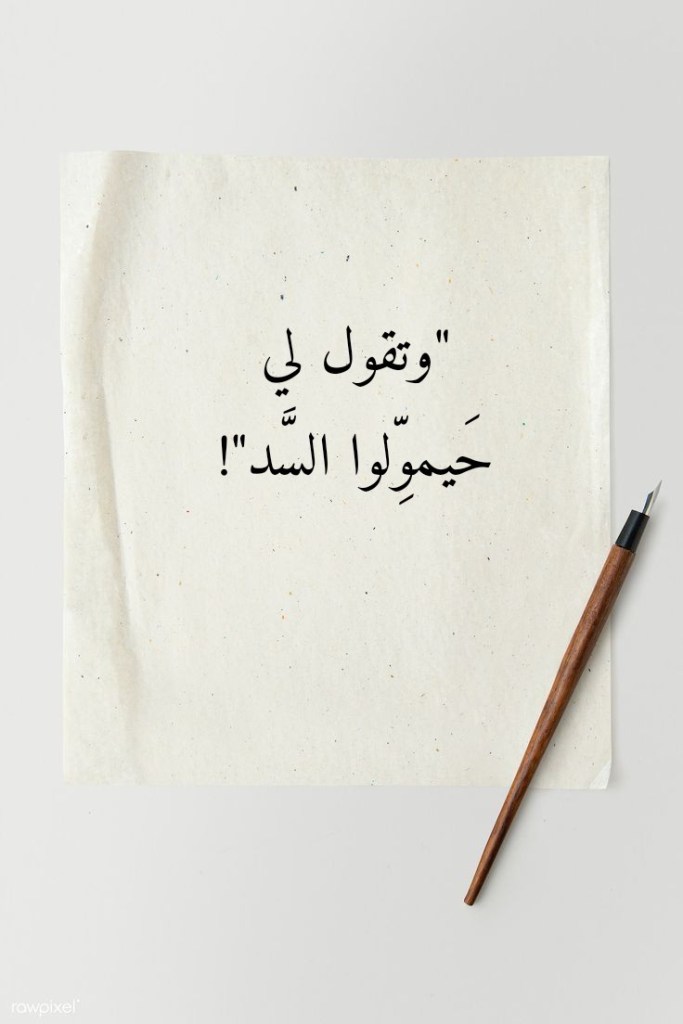 "وتقول لي
حَيموِّلوا السَّد"!
rawpixel